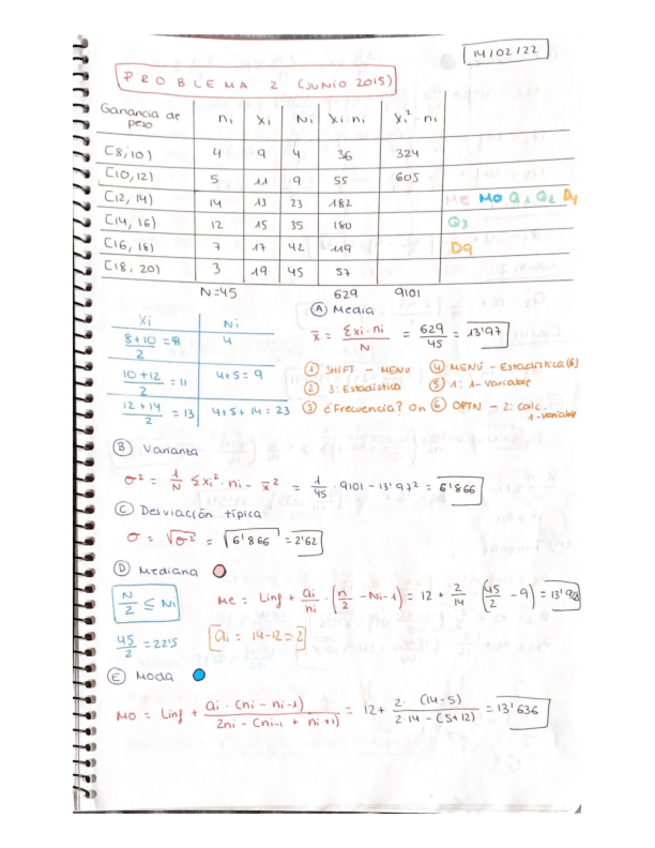 14/02/22
PROBLEMA 2 (JUNIO 2015)
Ganancia de peso ni xi Ni xi·ni xi²·ni
[8,10) 4 9 4 36 324
[10,12) 5 11 9 55 605
[12,14) 14 13 23 182 Me Mo Q1 Q2 D1
[14,16) 12 15 35 180 Q3
[16,18) 7 17 42 119 D9
[18,20) 3 19 45 57
N=45 629 9101
xi Ni
8+10/2 = 9 4
10+12/2 = 11 4+5=9
12+14/2 = 13 4+5+14=23
Ⓐ Media
x̄ = Σxi·ni/N = 629/45 = 13'97
① SHIFT - MENU
② 3: Estadística
③ ¿Frecuencia? On
④ MENÚ - Estadística (6)
⑤ 1: 1-variable
⑥ OPTN - 2: calc. 1-variable
Ⓑ Varianza
σ² = 1/N Σxi²·ni - x̄² = 1/45 · 9101 - 13'97² = 6'866
Ⓒ Desviacción típica
σ = √σ² = √6'866 = 2'62
Ⓓ Mediana
N/2 ≤ Ni
Me = Linf + ai/ni · (n/2 - Ni-1) = 12 + 2/14 · (45/2 - 9) = 13'928
45/2 = 22'5
ai = 14-12=2
Ⓔ Moda
Mo = Linf + ai · (ni - ni-1)/2ni - (ni-1 + ni+1) = 12 + 2· (14-5)/2·14 - (5+12) = 13'636